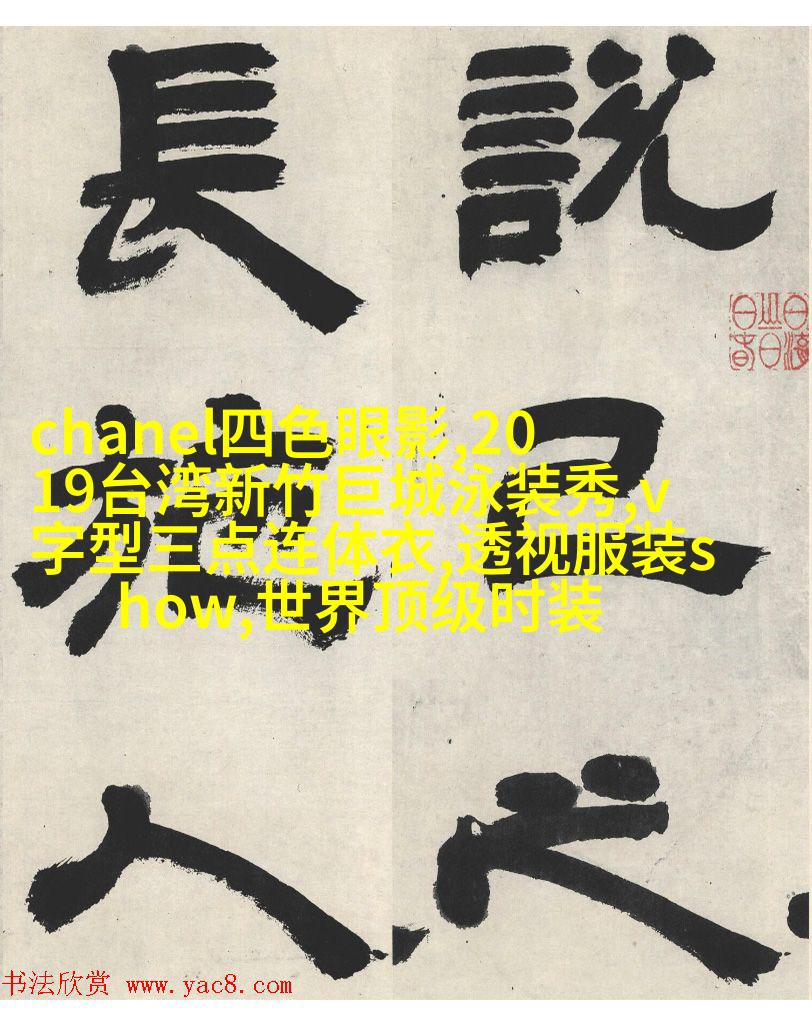 說己之
長施人
chanel四色眼影,20
19台湾新竹巨城泳装秀,v
字型三点连体衣,透视服装s
how,世界顶级时装
书法欣赏 www.yac8.com